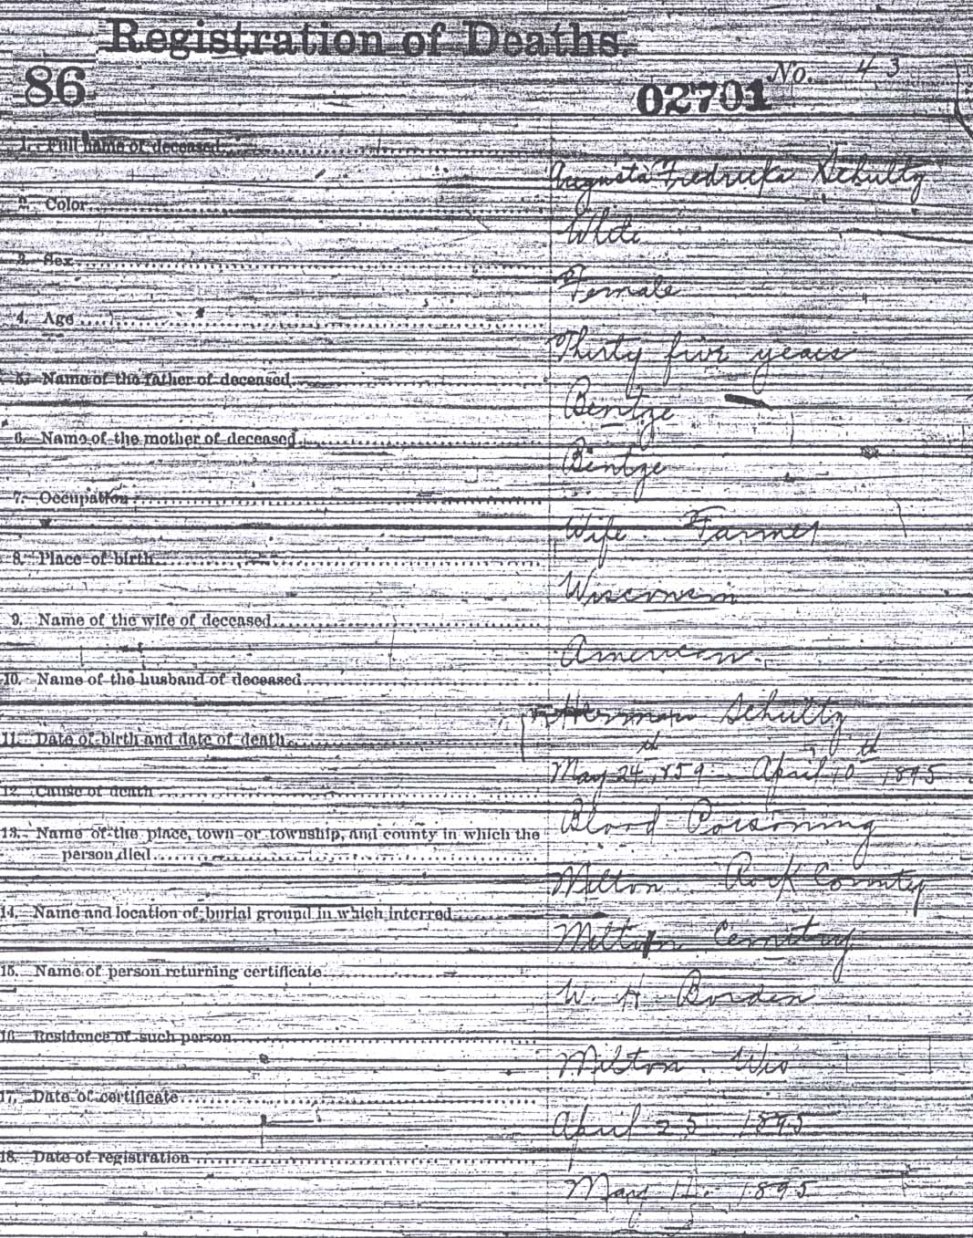 Registration of Deaths.
86
02701
No. 43
1. Full name of deceased
Augusta Fredricka Schultz
2. Color
White
3. Sex
Female
4. Age
Thirty five years
5. Name of the father of deceased
Bentze
6. Name of the mother of deceased
Bentze
7. Occupation
Wife Farmer
8. Place of birth
Wisconsin
9. Name of the wife of deceased
American
10. Name of the husband of deceased
Herman Schultz
11. Date of birth and date of death
May 24th 1859 April 10th 1895
12. Cause of death
Blood Poisoning
13. Name of the place, town or township, and county in which the
person died
Milton Rock County
14. Name and location of burial ground in which interred
Milton Cemetry
15. Name of person returning certificate
W. H Borden
16. Residence of such person
Milton. Wis
17. Date of certificate
April 25 1895
18. Date of registration
May 1895